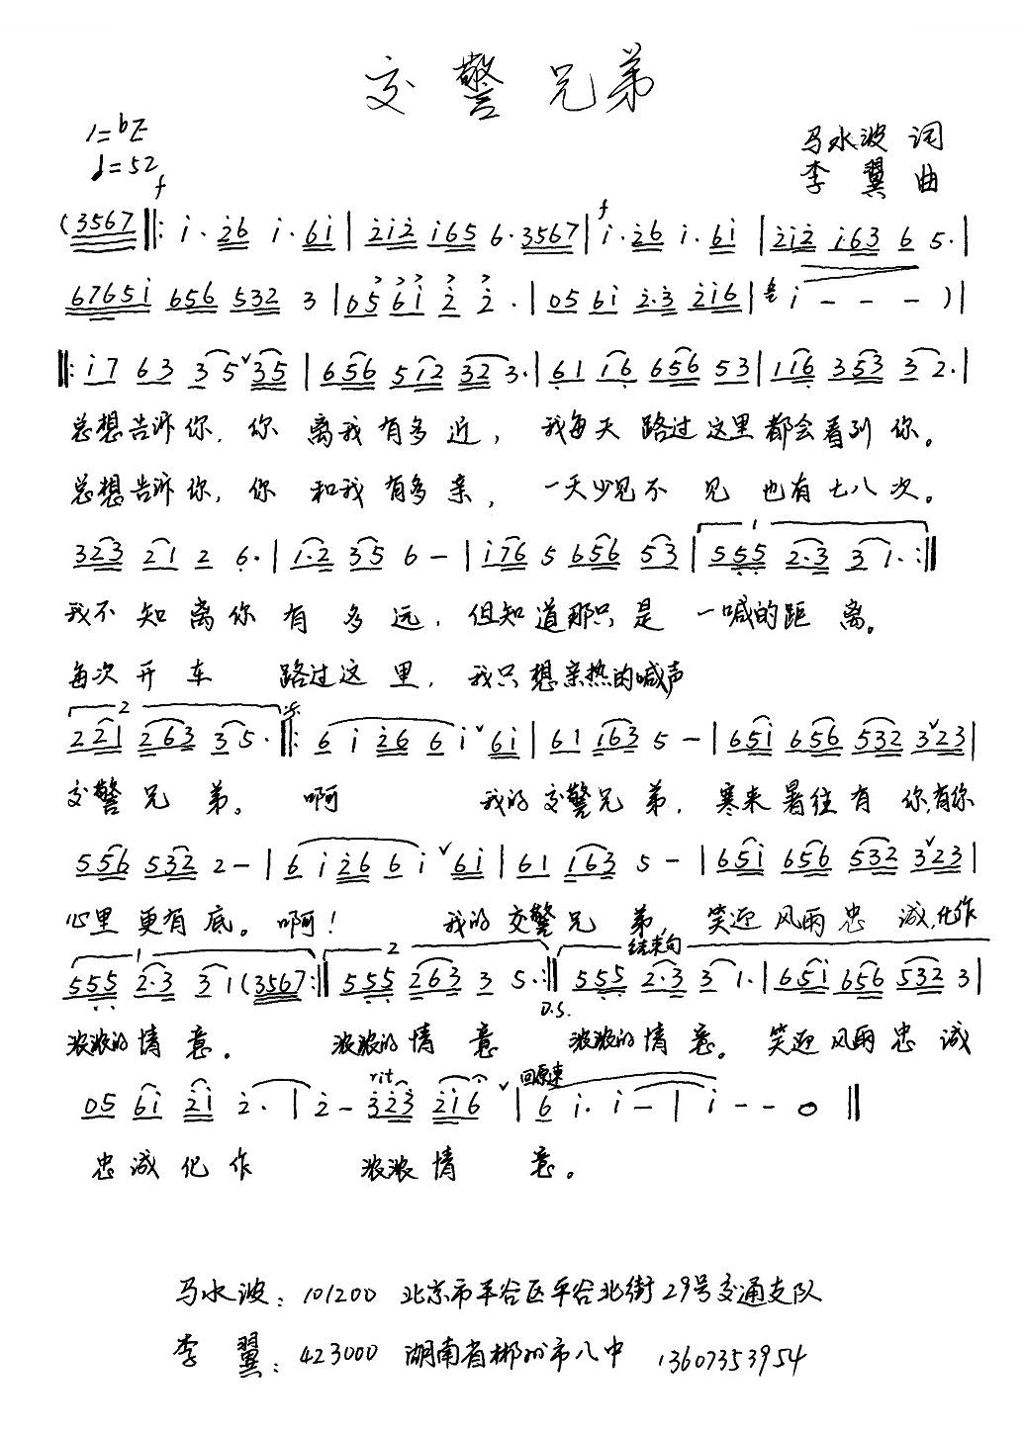 交警兄弟
1=bE
♩=52
马水波 词
李翼 曲
f
(3567‖: i·26 i·6i | 2i2 i65 6·3567 | f i·26 i·6i | 2i2 i63 6 5· |
6765i 656 532 3 | 05 6i 2 2· | 05 6i 2·3 2i6 | i - - - ) |
‖: i7 63 35ˇ35 | 656 5i2 32 3· | 61 i6 656 53 | 116 353 3 2· |
总想告诉你,你 离我有多近, 我每天路过这里都会看到你。
总想告诉你,你 和我有多亲, 一天少见不见也有七八次。
323 21 2 6· | 1·2 35 6 - | i76 5 656 53 | 1 555 2·3 3 1· :‖
我不知离你有多远,但知道那只是一喊的距离。
每次开车 路过这里,我只想亲热的喊声
2 221 263 35· ‖: 6 i 26 6 iˇ6i | 61 i63 5 - | 65i 656 532 3ˇ23 |
交警兄弟。啊 我的交警兄弟,寒来暑往有你,有你
556 532 2 - | 6 i 26 6 iˇ6i | 61 i63 5 - | 65i 656 532 3ˇ23 |
心里更有底。啊! 我的交警兄弟,笑迎风雨忠诚,化作
1 555 2·3 3 1 (3567 :‖ 2 555 263 3 5· :‖ D.S. 结束句 555 2·3 3 1· | 65i 656 532 3 |
浓浓的情意。 浓浓的情意 浓浓的情意。笑迎风雨忠诚
05 6i 2i 2· | 2 - rit 323 2i6ˇ | 回原速 6 i· i - | i - - 0 ‖
忠诚化作 浓浓情意。
马水波: 101200 北京市平谷区平谷北街29号交通支队
李翼: 423000 湖南省郴州市八中 13607353954